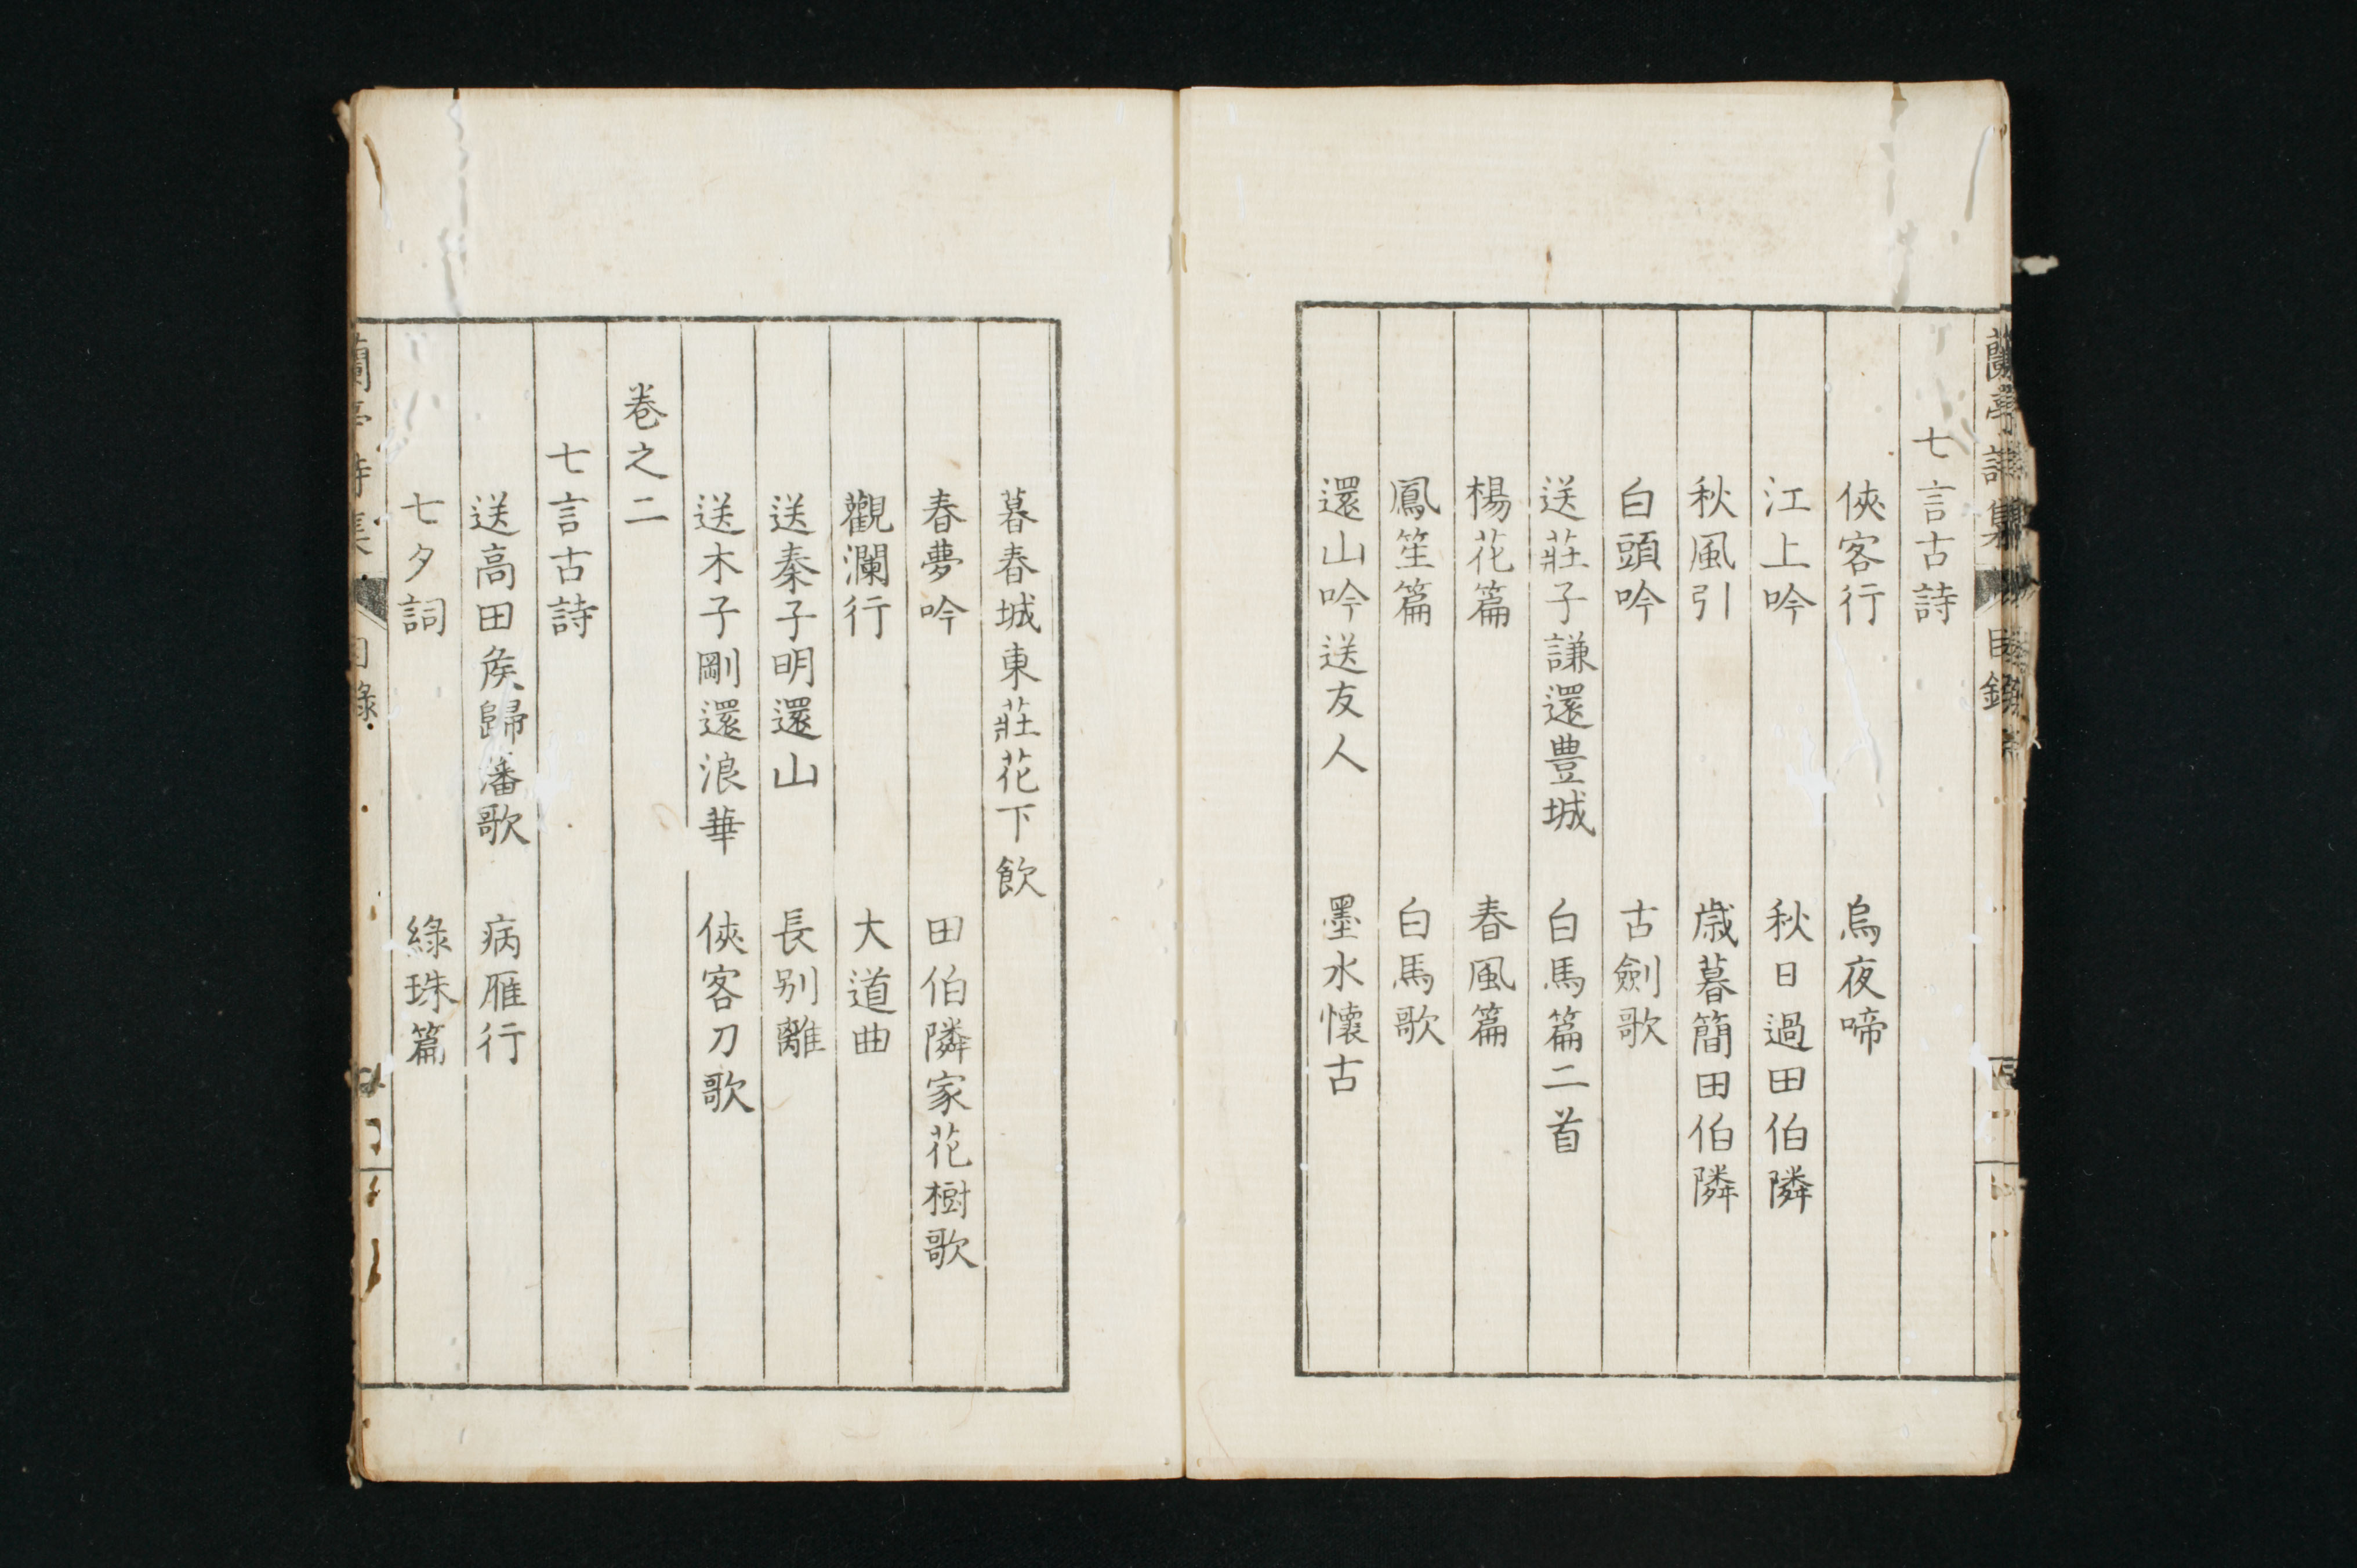 蘭亭詩集 目錄
七言古詩
俠客行 烏夜啼
江上吟 秋日過田伯隣
秋風引 歳暮簡田伯隣
白頭吟 古劍歌
送莊子謙還豊城 白馬篇二首
楊花篇 春風篇
鳳笙篇 白馬歌
還山吟送友人 墨水懷古
暮春城東莊花下飲
春夢吟 田伯隣家花樹歌
觀瀾行 大道曲
送秦子明還山 長別離
送木子剛還浪華 俠客刀歌
卷之二
七言古詩
送高田矦歸潘歌 病雁行
七夕詞 綠珠篇
蘭亭詩集 目錄